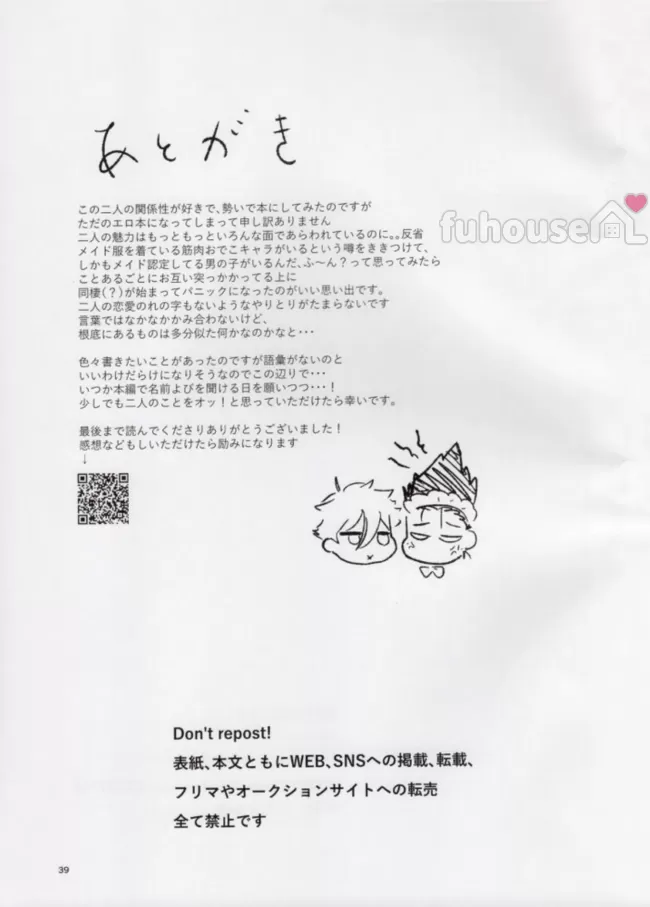 あとがき
fuhouse
この二人の関係性が好きで、勢いで本にしてみたのですが
ただのエロ本になってしまって申し訳ありません
二人の魅力はもっともっといろんな面であらわれているのに。。反省
メイド服を着ている筋肉おでこキャラがいるという噂をききつけて、
しかもメイド認定してる男の子がいるんだ、ふ〜ん?って思ってみたら
ことあるごとにお互い突っかかってる上に
同棲(?)が始まってパニックになったのがいい思い出です。
二人の恋愛のれの字もないようなやりとりがたまらないです
言葉ではなかなかかみ合わないけど、
根底にあるものは多分似た何かなのかなと・・・
色々書きたいことがあったのですが語彙がないのと
いいわけだらけになりそうなのでこの辺りで・・・
いつか本編で名前よびを聞ける日を願いつつ・・・!
少しでも二人のことをオッ!と思っていただけたら幸いです。
最後まで読んでくださりありがとうございました!
感想などもしいただけたら励みになります
↓
Don't repost!
表紙、本文ともにWEB、SNSへの掲載、転載、
フリマやオークションサイトへの転売
全て禁止です
39